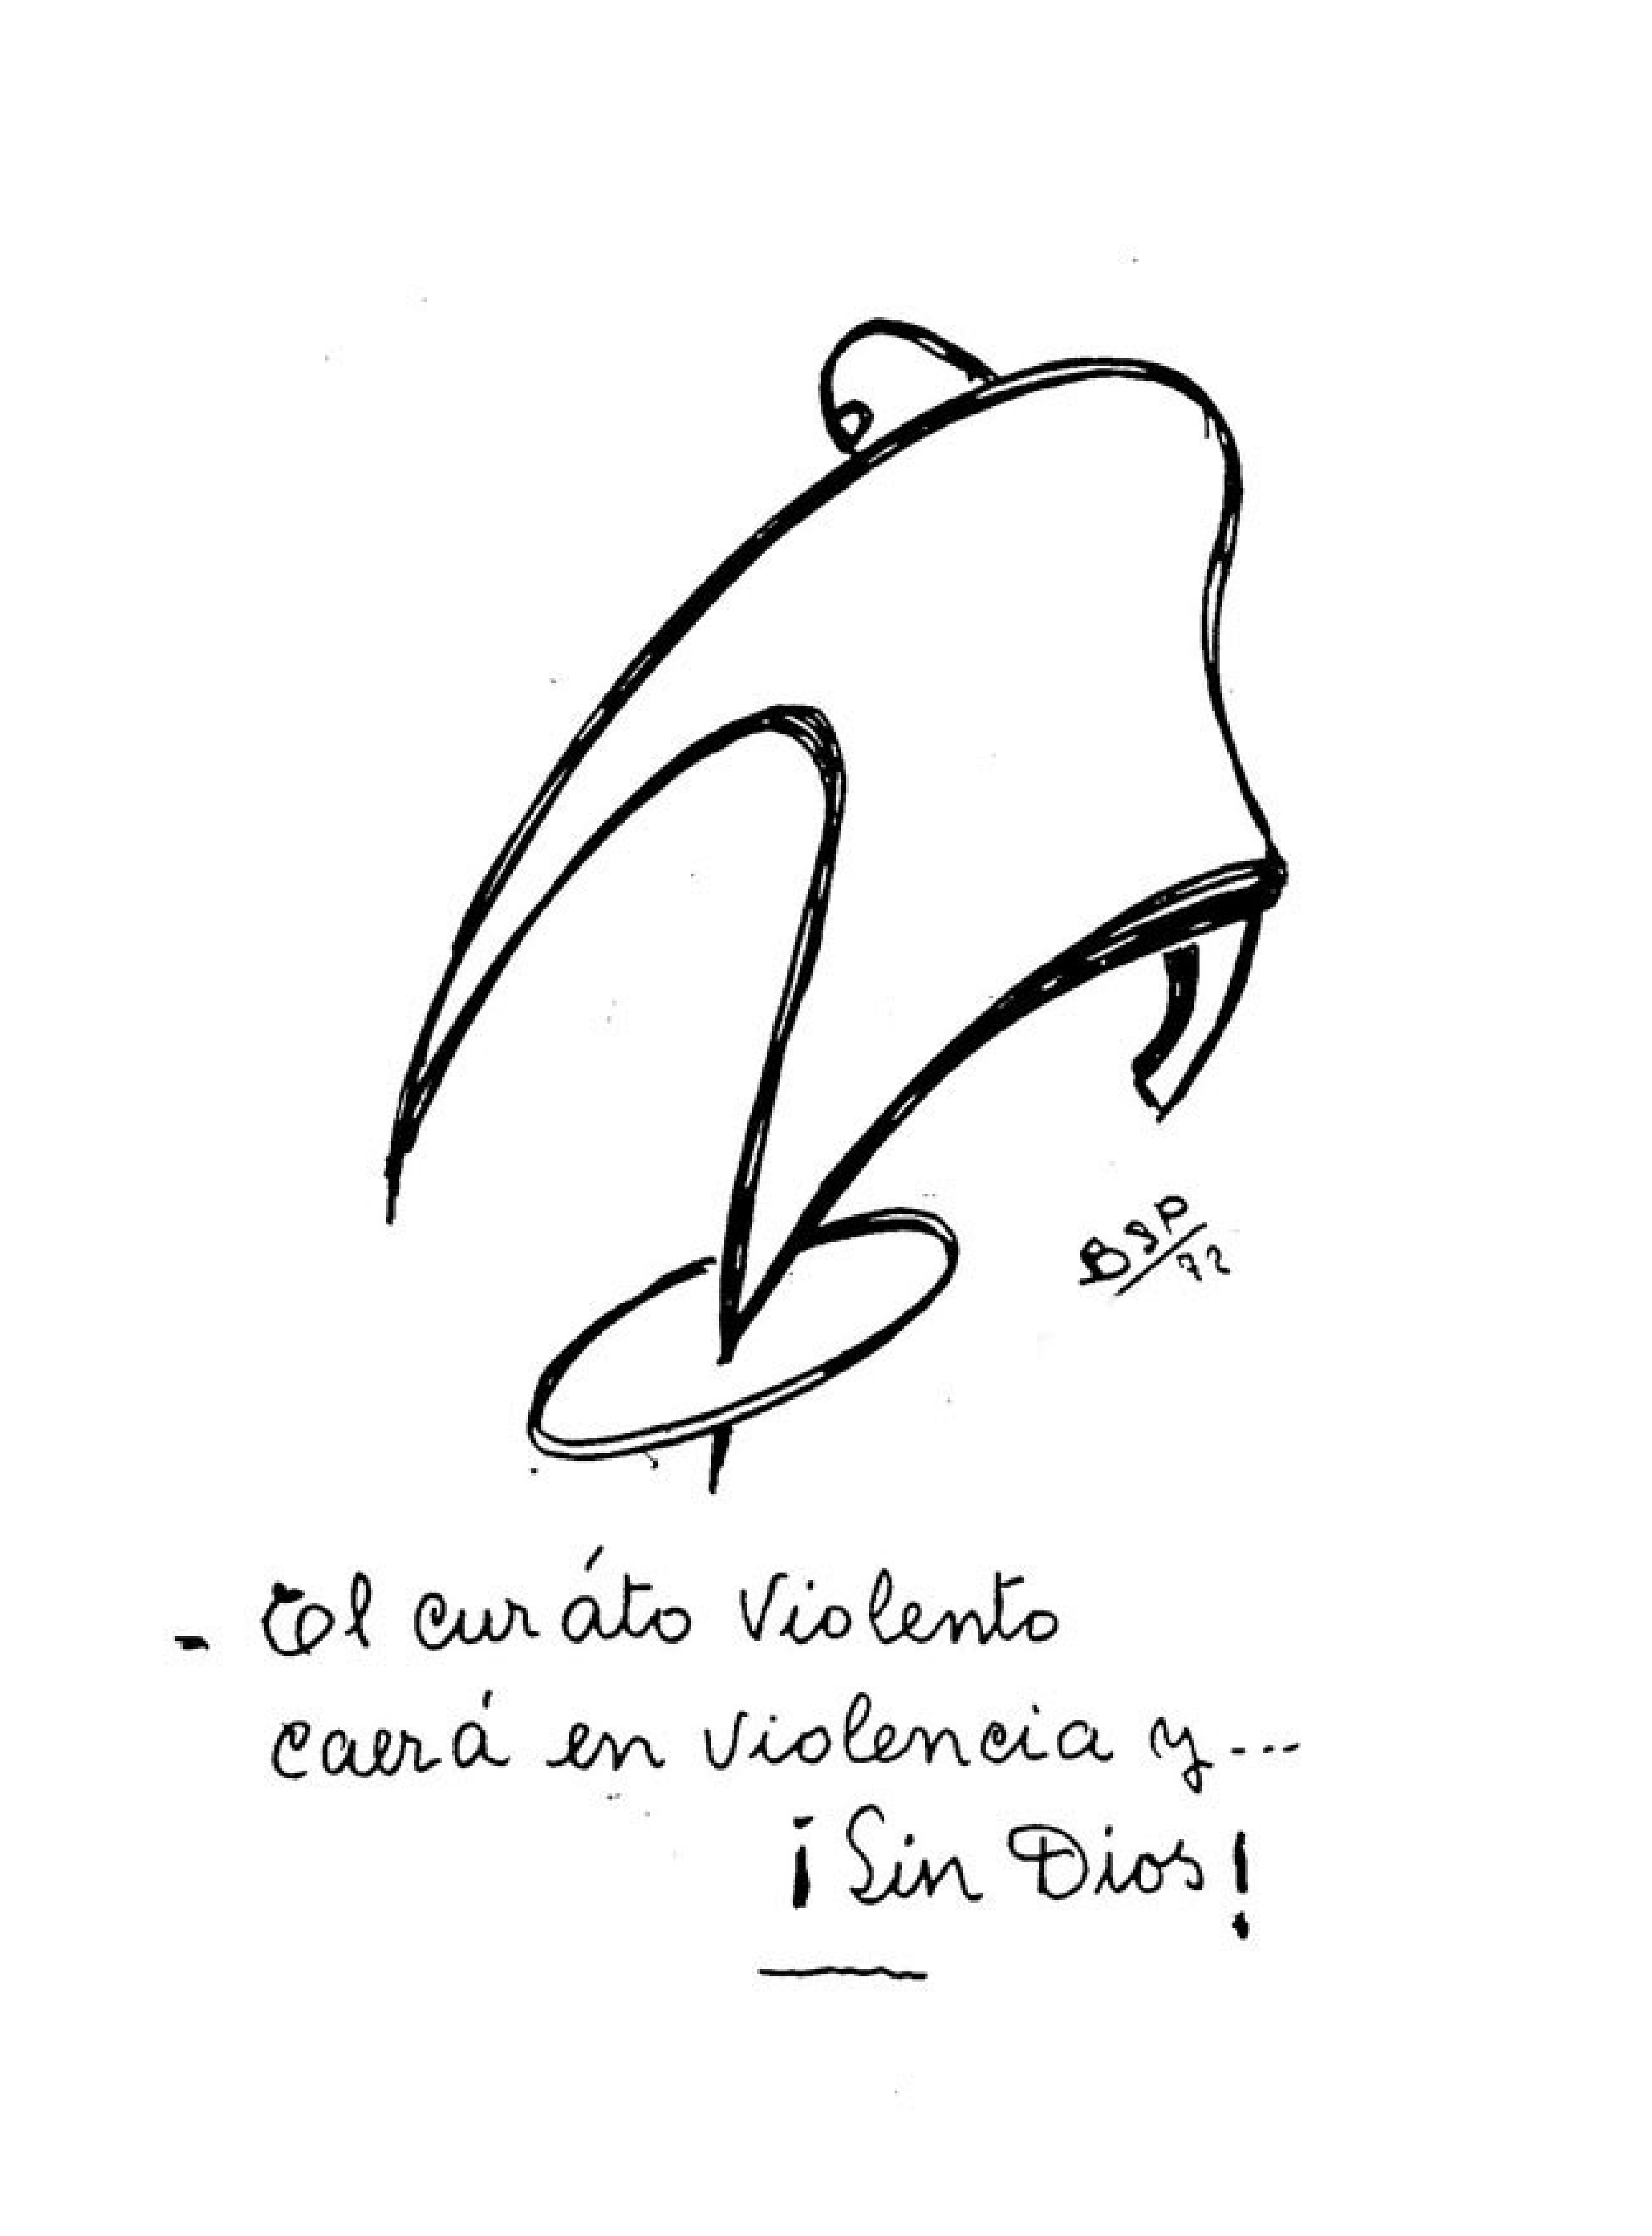 BSP/72
- El curáto violento
caerá en violencia y...
¡Sin Dios!